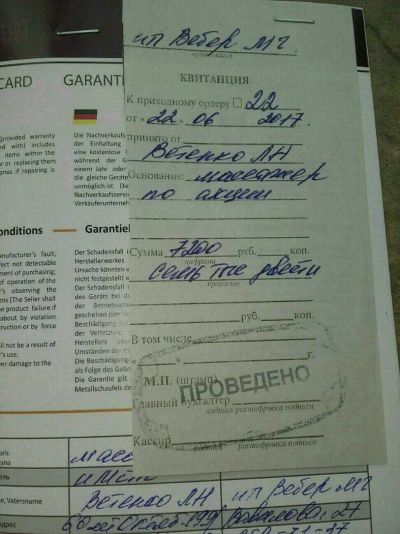 CARD GARANTI
ип Вебер МГ
КВИТАНЦИЯ
К приходному ордеру 22
от « 22. 06 2017.
принято от
Ветенко ЛН
Основание: массажер
по акции
Сумма 7200 руб. коп.
цифрами
семь тыс двести
прописью
руб. коп.
В том числе
г.
М.П. (штамп)
ПРОВЕДЕНО
Главный бухгалтер
подпись расшифровка подписи
Кассир
подпись расшифровка подписи
provided warranty
d with) includes
items within the
or replacing them
pas if repairing is
Die Nachverkaufs
der Einhaltung
eine kostenlose
während der G
einem Jahr oder
die gleiche Geräte
unmöglich ist. Die
Nachverkaufsservic
Verkäuferunterneh
onditions Garantiel
nufacturer's fault,
fect not detectable
ment of purchasing;
of operation of the
's observing the
ons (The Seller shall
e product failure if
about by violation
struction or by force
ll not be a result of
's use.
ver damage to the
Der Schadensfall i
Herstellerwerkes
Ursache könnten v
nicht festgestellt w
der Schadensfall
des Geräts bei d
der Betriebsanle
geschehen (der Ve
Beschädigung
der Verletzung
Herstellers
Umständen der E
Die Beschädigung
als Folge des Geb
Die Garantie gilt
Metallschaufeln de
Ветенко ЛН ип Вебер МГ
e, Vatersname
Адрес